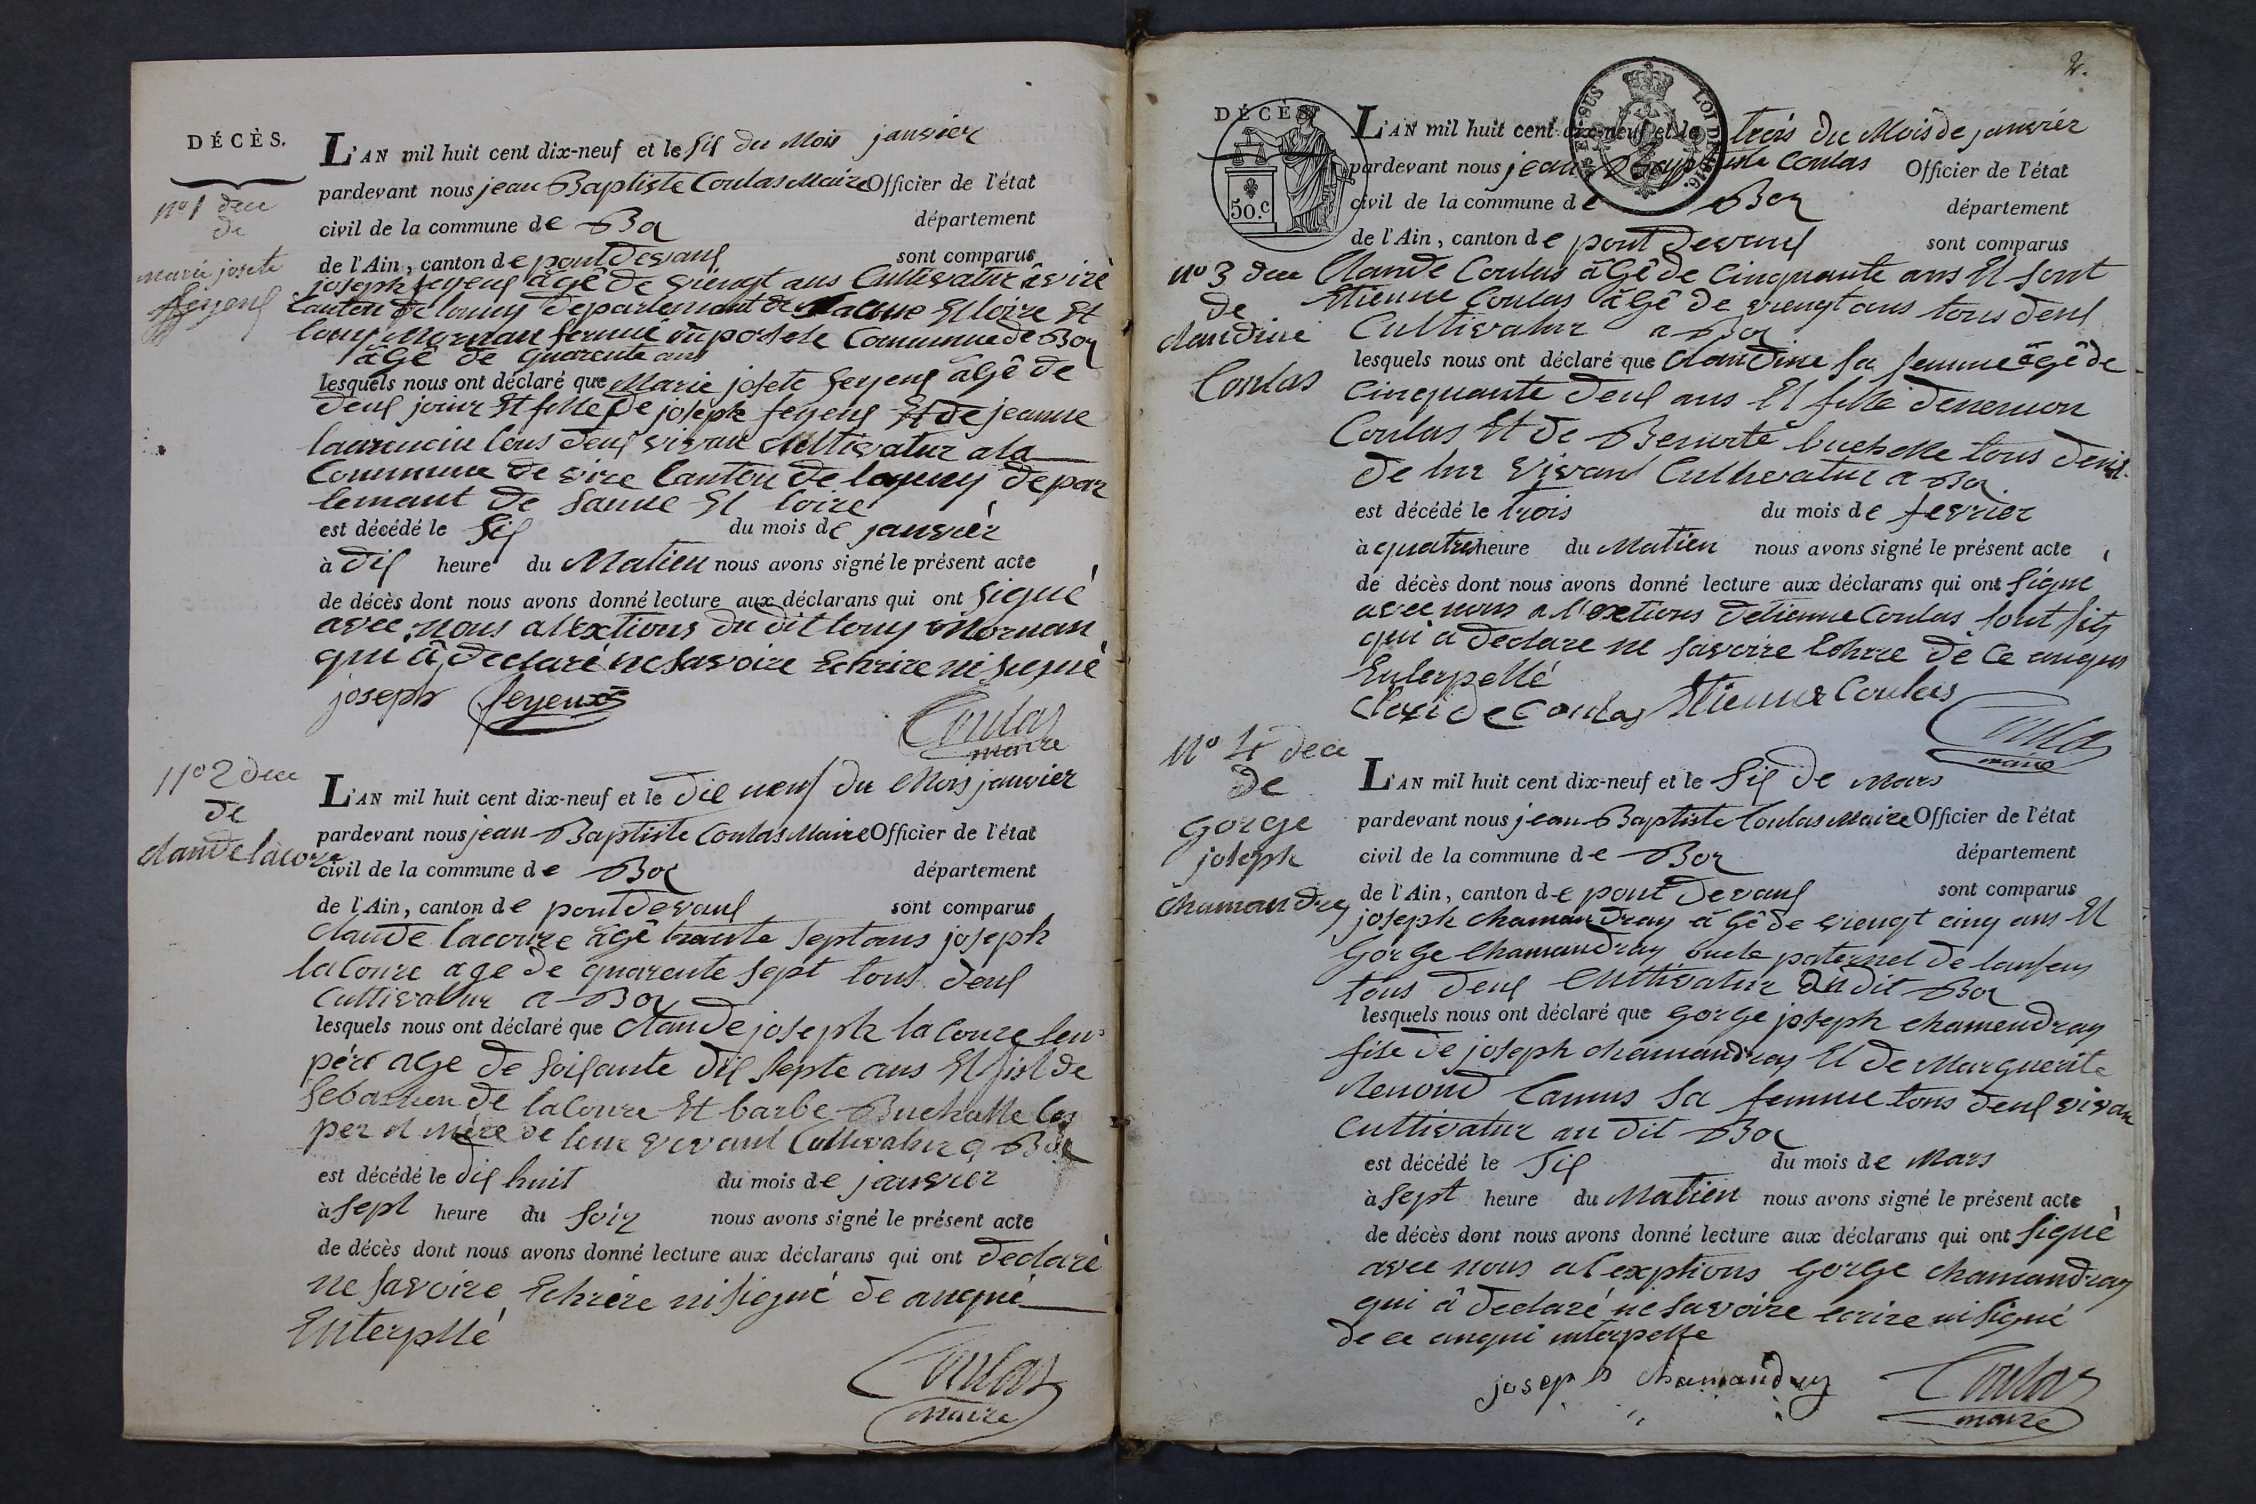 DÉCÈS.
L'AN mil huit cent dix-neuf et le sis du Mois janvier
pardevant nous jean Baptiste Coulas Maire Officier de l'état
nº 1 dece
civil de la commune de Boz département
de
de l'Ain, canton de pont devaus sont comparus
marie josete
joseph feyeus âgé de viengt ans Cultivatur à viré
feyeus
Canton de louny departement de saonne Et loire Et
louy Mornan fermié Comunne de Boz
âgé de quarente ans
lesquels nous ont déclaré que Marie josete feyeus âgé de
deus jour Et fille de joseph feyeus Et de jeanne
tous deus vivan Cultivatur a la
Commune de vire Canton de louny depar
temant de saune Et loire
est décédé le sis du mois de janvièr
à dis heure du Matien nous avons signé le présent acte
de décès dont nous avons donné lecture aux déclarans qui ont signé
avec nous a lextions du dit louy Mornan
qui à declaré ne savoire Echrire ni signé
joseph feyeux
Coulas
maire
nº 2 dece
de
claude lacoure
L'AN mil huit cent dix-neuf et le dix neuf du Mois janvier
pardevant nous jean Baptiste Coulas Maire Officier de l'état
civil de la commune de Boz département
de l'Ain, canton de pont devaus sont comparus
claude lacoure âgé trante sept ans joseph
lacoure age de quarente sept tous deus
Cultivatur a Boz
lesquels nous ont déclaré que claude joseph lacoure leur
père age de soisante dis septe ans Et fist de
Sebastien de lacoure Et barbe Buchalle les
per et mère de leur vivant Cultivatur a Boz
est décédé le dis huit du mois de janvièr
à sept heure du soir nous avons signé le présent acte
de décès dont nous avons donné lecture aux déclarans qui ont declaré
ne savoire Echrère ni signé de anquié
Enterpllé
Coulas
maire
2.
DÉCÈS.
50.c
LOI DE 1816.
L'AN mil huit cent dix-neuf et le trois du Mois de janvièr
pardevant nous jean Baptiste Coulas Officier de l'état
civil de la commune de Boz département
de l'Ain, canton de pont devaus sont comparus
nº 3 dece
Claude Coulas âgé de cinquante ans Et sont
de
Etienne Coulas âgé de viengt ans tous deus
claudine
Cultivatur a Boz
Coulas
lesquels nous ont déclaré que claudine sa femme âgé de
cinquante deus ans Et fille
Coulas Et de Benoité buchalle tous deus
de lur vivant Cultivatur a Boz
est décédé le trois du mois de fevrier
à quatre heure du Matien nous avons signé le présent acte
de décès dont nous avons donné lecture aux déclarans qui ont signé
avec nous a l'extions detienne Coulas sont fis
qui a declare ne savoire Echrre de ce anques
Enterpellé
Claude Coulas Etienne Coulas
Coulas
maire
Nº 4 dece
de
gorge
joseph
chamandrey
L'AN mil huit cent dix-neuf et le sis de Mars
pardevant nous jean Baptiste Coulas Maire Officier de l'état
civil de la commune de Boz département
de l'Ain, canton de pont devaus sont comparus
joseph chamandray âgé de viengt cinq ans Et
gorge chamandray oncle paternel de lanfens
tous deus Cultivatur du dit Boz
lesquels nous ont déclaré que gorge joseph chamendray
fise de joseph chamandray Et de Marguerite
Renoud Camus sa femme tous deus vivan
cultivatur au dit Boz
est décédé le sis du mois de Mars
à sept heure du Matien nous avons signé le présent acte
de décès dont nous avons donné lecture aux déclarans qui ont signé
avec nous al exptions gorge chamandray
qui à declaré ne savoire ecrire ni signé
de ce anqui interpelle
joseph chamandrey
Coulas
maire